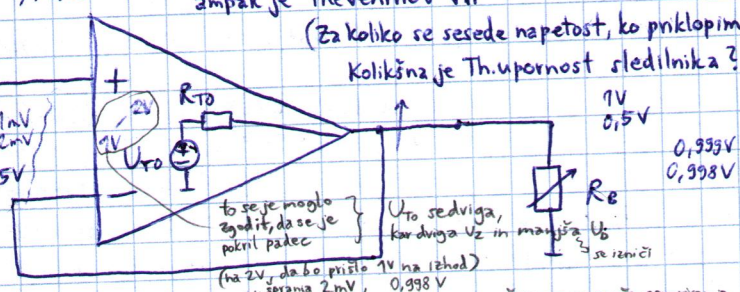 ampak je Theveninov vir
(Za koliko se sesede napetost, ko priklopim
Kolikšna je Th. upornost sledilnika?
1V
0,5V
0,999V
0,998V
1mV
2mV
5V
+
2V
1V
RTO
UTO
−
RB
to se je moglo
zgodit, da se je
pokril padec
UTO se dviga,
kar dviga Uz in manjša Ub
se izniči
(na 2V, da bo prišlo 1V na izhod)
2mV, 0,998V